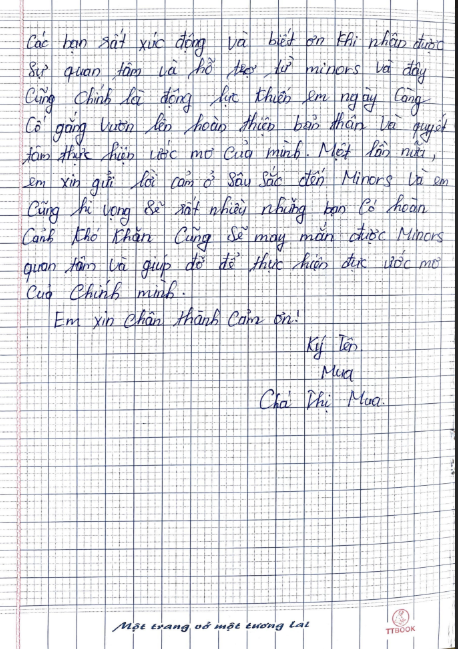 Các bạn rất xúc động và biết ơn khi nhận được
sự quan tâm và hỗ trợ từ minors và đây
Cũng Chính là động lực khiến em ngày Càng
Cố gắng vươn lên hoàn thiện bản thân và quyết
tâm thực hiện ước mơ Của mình. Một lần nữa,
em xin gửi lời cảm ơ sâu sắc đến Minors và em
Cũng hi vọng sẽ rất nhiều những bạn Có hoàn
Cảnh Khó Khăn Cũng sẽ may mắn được Minors
quan tâm và giúp đỡ để thực hiện đực ước mơ
Của Chính mình.
Em xin Chân thành Cảm ơn!
Ký Tên
Mua
Chá Thị Mua.
Một trang vở một tương lai
TTBOOK